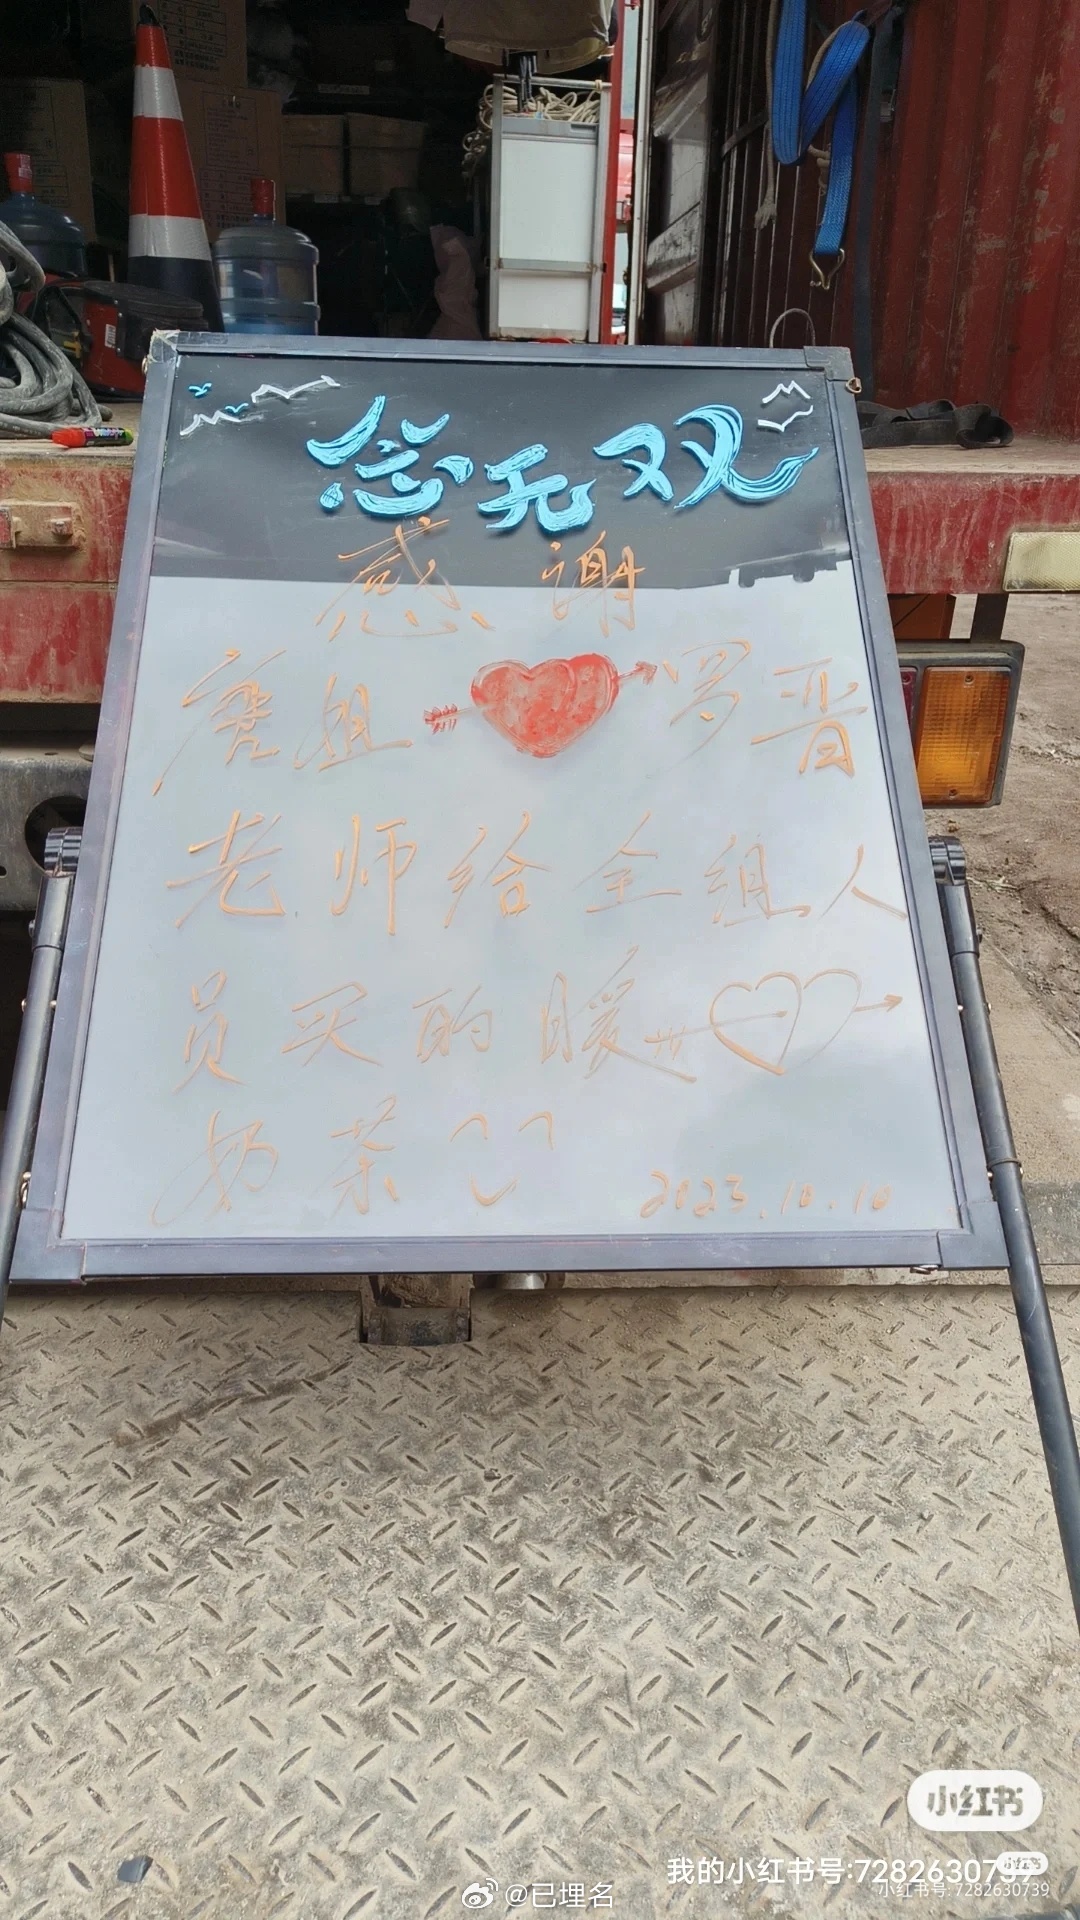 念无双
感谢
唐姐 罗晋
老师给全组人
员买的暖
奶茶
2023.10.10
小红书
我的小红书号:7282630739
小红书
小红书号:7282630739
@已埋名